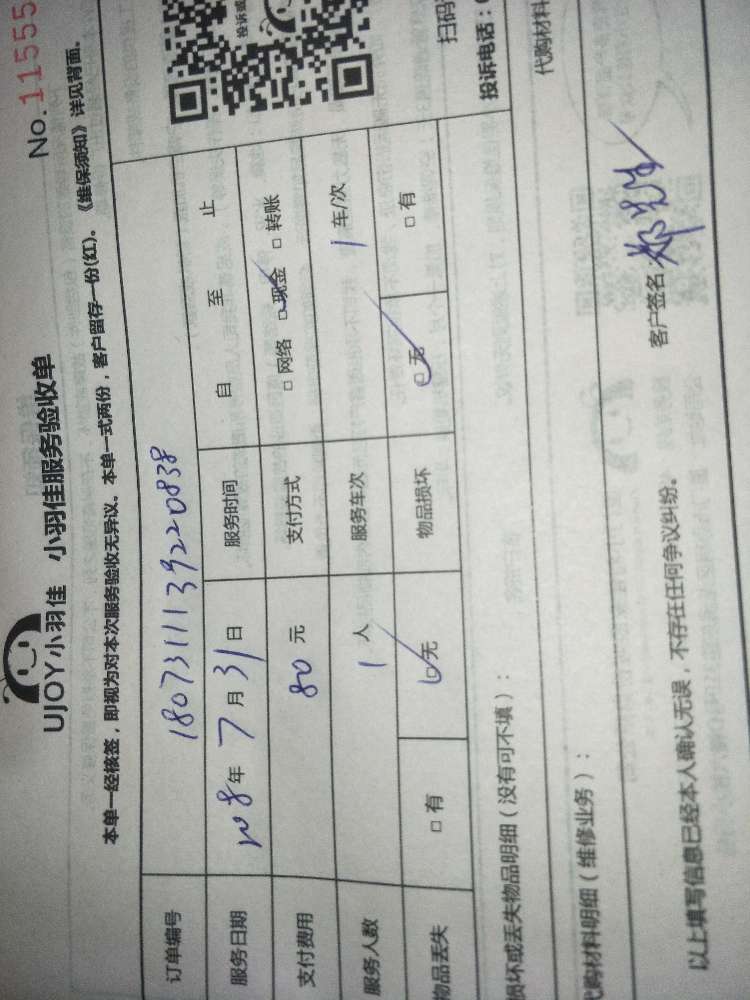 UJOY小羽佳 小羽佳服务验收单
No.11555
本单一经核签，即视为对本次服务验收无异议。本单一式两份，客户留存一份(红)。《维保须知》详见背面。
订单编号 18073111139220838
服务日期 2018年7月31日 服务时间 自 至 止
支付费用 80元 支付方式 □ 网络 □ 现金 □ 转账
服务人数 1人 服务车次 1车/次
物品丢失 □ 有 □ 无 物品损坏 □ 无 □ 有
损坏或丢失物品明细（没有可不填）：
投诉电话：
扫码
代购材料明细（维修业务）：
代购材料
以上填写信息已经本人确认无误，不存在任何争议纠纷。
客户签名：郑先生